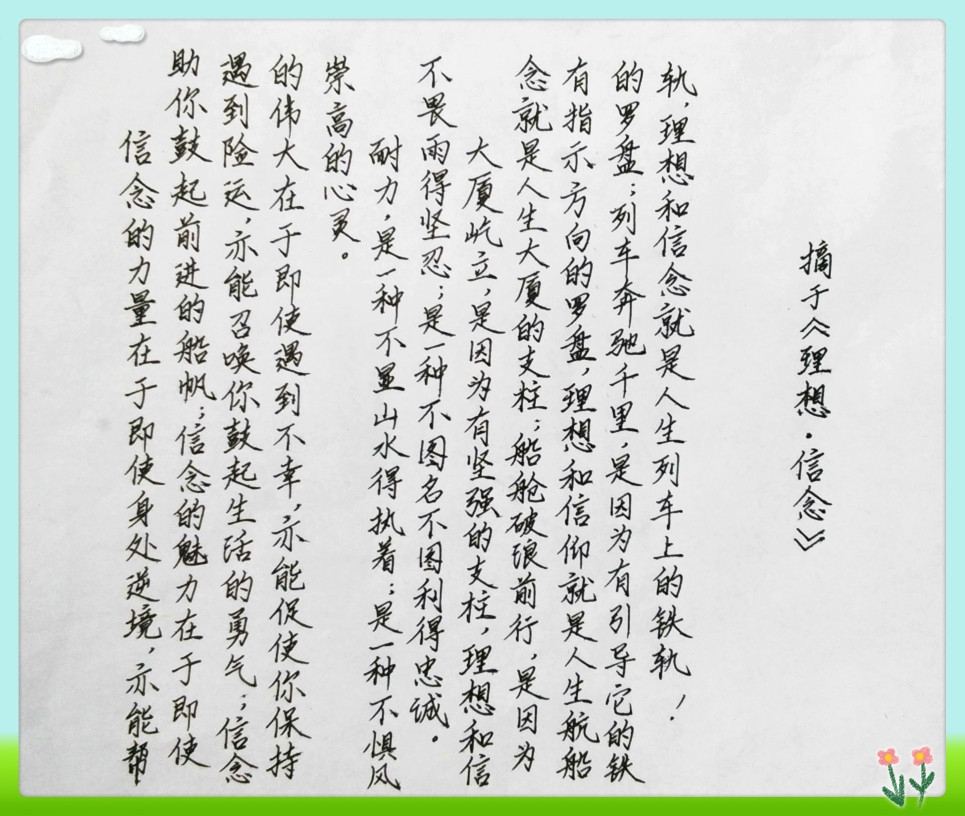 信念的力量在于即使身处逆境,亦能帮
助你鼓起前进的船帆;信念的魅力在于即使
遇到险运,亦能召唤你鼓起生活的勇气;信念
的伟大在于即使遇到不幸,亦能促使你保持
崇高的心灵。
耐力,是一种不显山水得执着;是一种不惧风
不畏雨得坚忍;是一种不图名不图利得忠诚。
大厦屹立,是因为有坚强的支柱,理想和信
念就是人生大厦的支柱;船舱破浪前行,是因为
有指示方向的罗盘,理想和信仰就是人生航船
的罗盘;列车奔驰千里,是因为有引导它的铁
轨,理想和信念就是人生列车上的铁轨!
摘于《理想·信念》